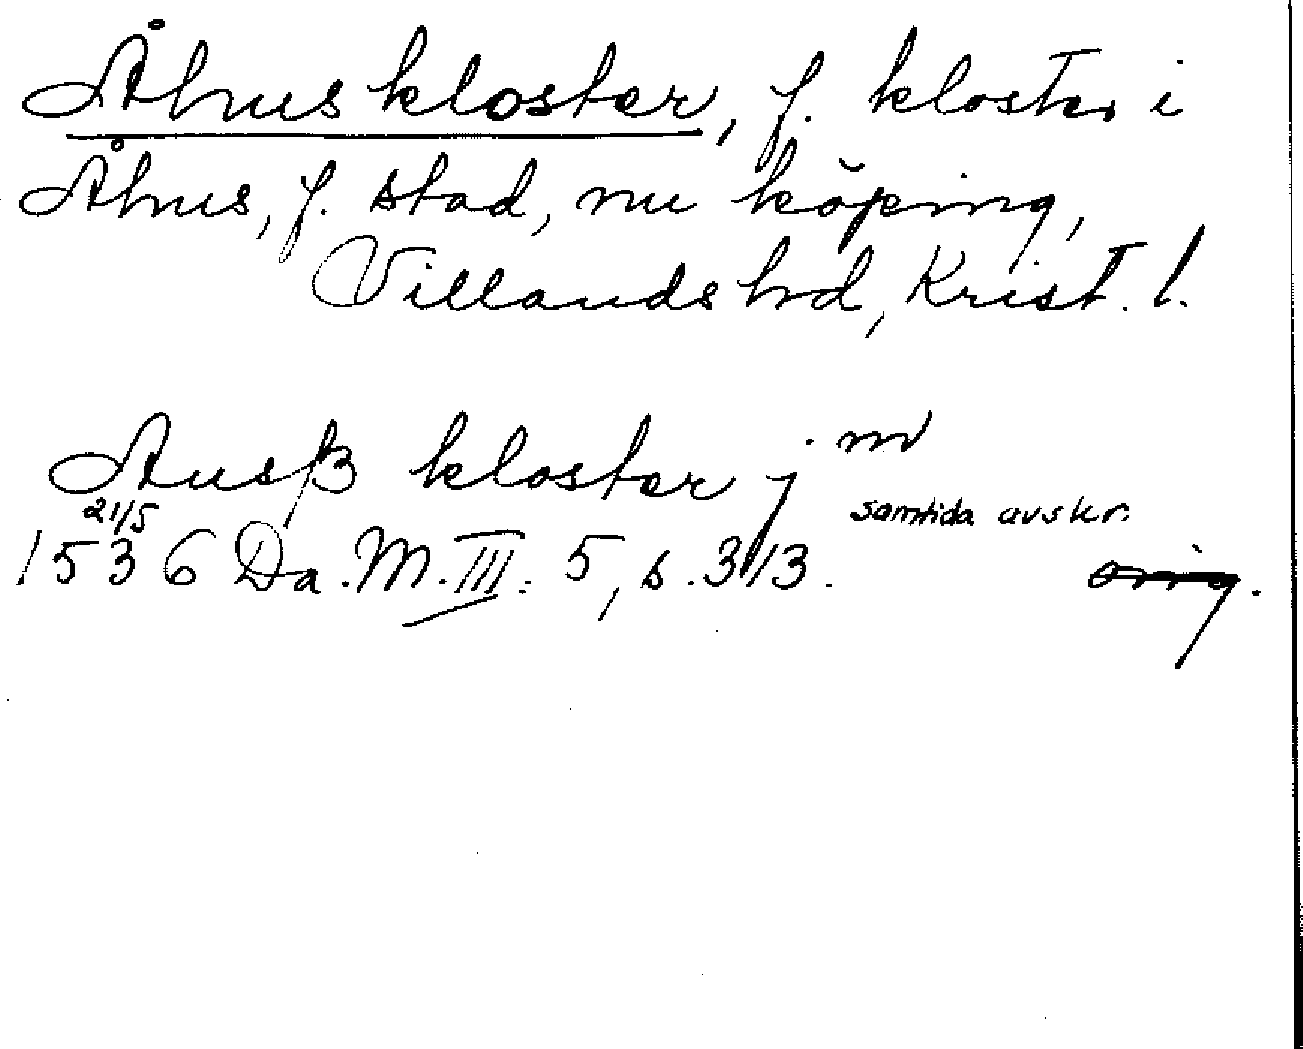 Åhus kloster, f. kloster i
Åhus, f. stad, nu köping,
Villands hd, Krist. l.
Ausß kloster j m
21/5 samtida avskr.
1536 Da. M. III: 5, s. 313. orig.